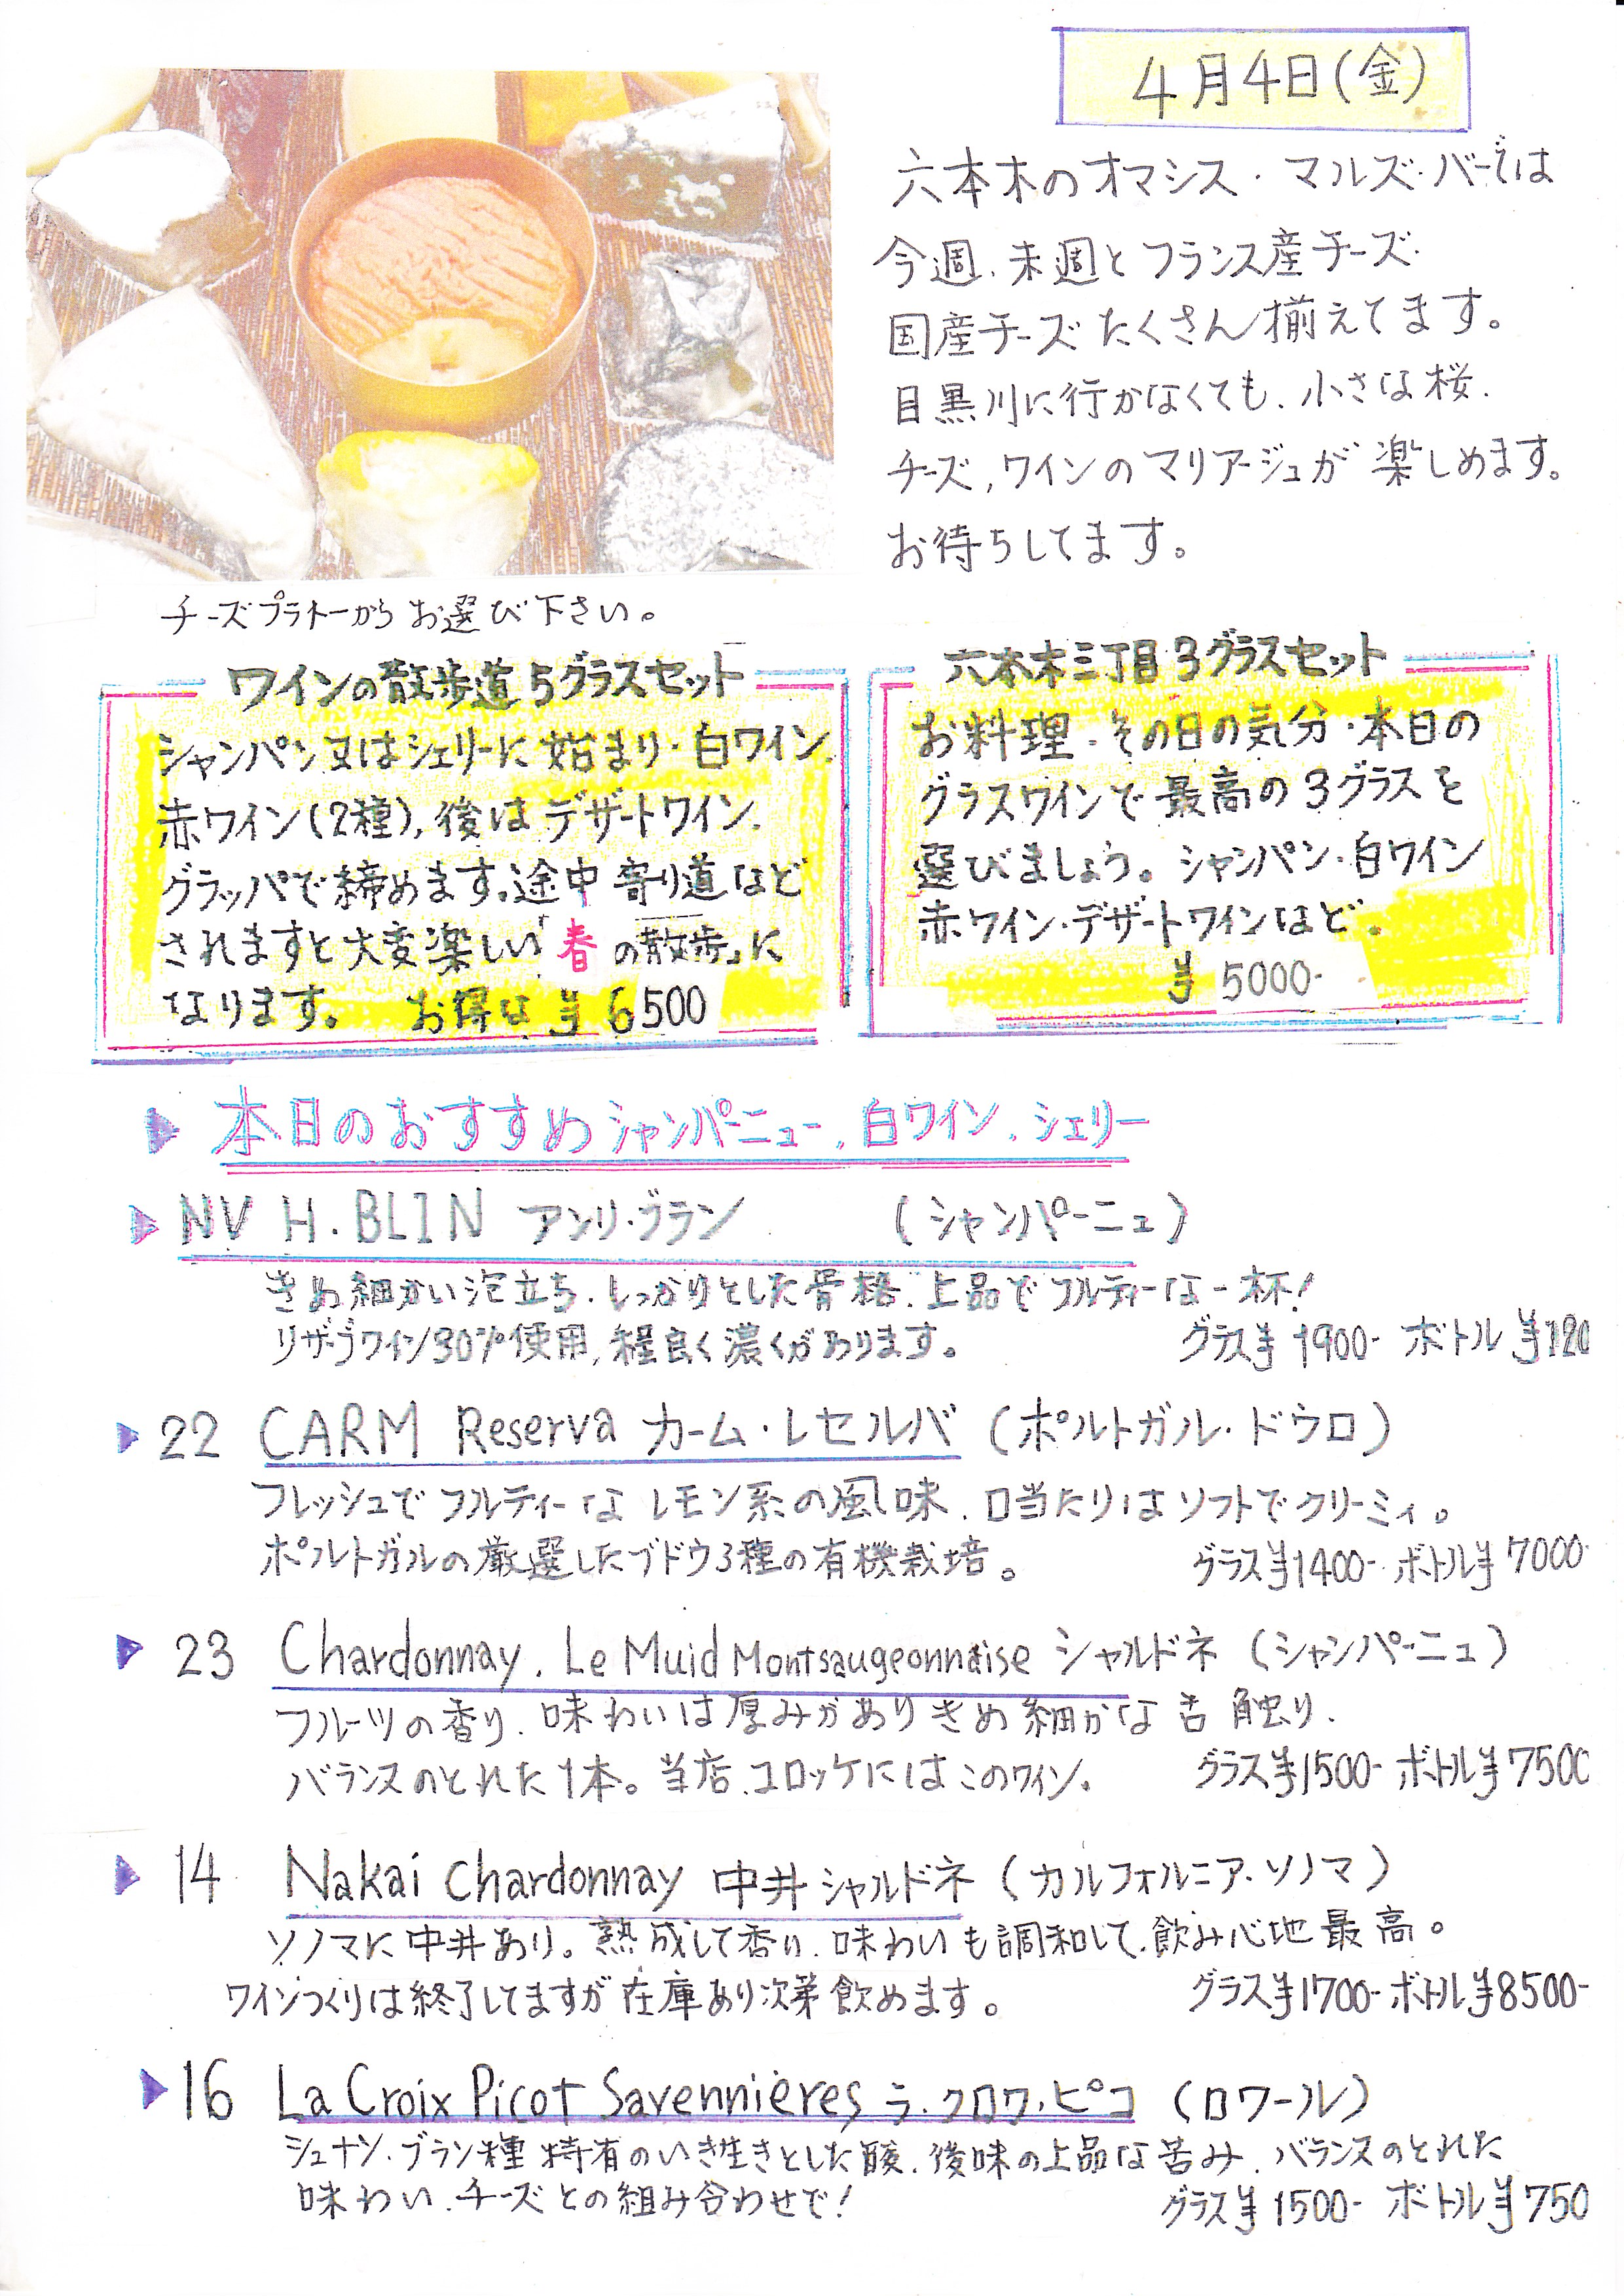 4月4日(金)
六本木のオマシス・マルズ・バーでは
今週、来週とフランス産チーズ.
国産チーズたくさん揃えてます。
目黒川に行かなくても、小さな桜.
チーズ,ワインのマリアージュが楽しめます。
お待ちしてます。
チーズプラトーからお選び下さい。
ワインの散歩道5グラスセット
シャンパン又はシェリーに始まり・白ワイン.
赤ワイン(2種),後はデザートワイン.
グラッパで締めます。途中寄り道など
されますと大変楽しい「春の散歩」に
なります。 お得な¥6500
六本木三丁目3グラスセット
お料理・その日の気分・本日の
グラスワインで最高の3グラスを
選びましょう。シャンパン・白ワイン
赤ワイン・デザートワインなど。
¥5000-
本日のおすすめシャンパーニュー、白ワイン、シェリー
NV H.BLIN アンリ・ブラン (シャンパーニュ)
きめ細かい泡立ち、しっかりとした骨格、上品でフルティーな一杯!
リザーブワイン30%使用,程良く濃くがあります。 グラス¥1900- ボトル¥120
22 CARM Reserva カーム・レセルバ (ポルトガル・ドウロ)
フレッシュでフルティーなレモン系の風味、口当たりはソフトでクリーミィ。
ポルトガルの厳選したブドウ3種の有機栽培。 グラス¥1400- ボトル¥7000-
23 Chardonnay. Le Muid Montsaugeonnaise シャルドネ (シャンパーニュ)
フルーツの香り、味わいは厚みがありきめ細かな舌触り.
バランスのとれた1本。当店、コロッケにはこのワイン。 グラス¥1500- ボトル¥7500
14 Nakai Chardonnay 中井シャルドネ (カルフォルニア・ソノマ)
ソノマに中井あり。熟成して香り、味わいも調和して、飲み心地最高。
ワインつくりは終了してますが在庫あり次第飲めます。 グラス¥1700- ボトル¥8500-
16 La Croix Picot Savennières ラ・クロワ・ピコ (ロワール)
シュナン・ブラン種特有のいき生きとした酸、後味の上品な苦み、バランスのとれた
味わい、チーズとの組み合わせで! グラス¥1500- ボトル¥750